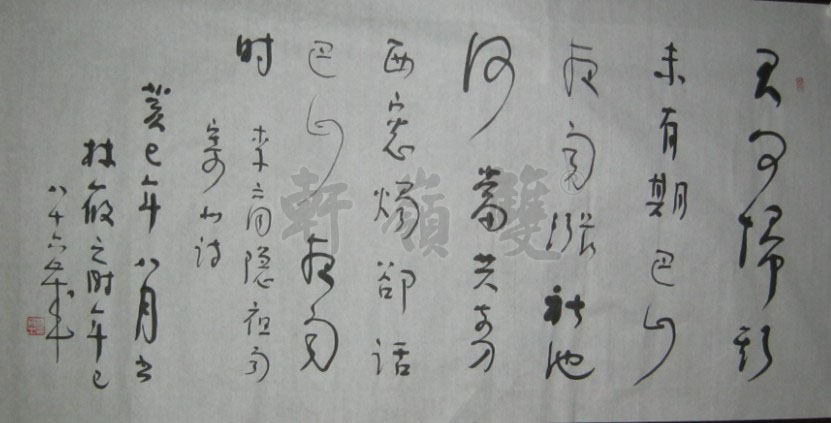 君问归期
未有期巴山
夜雨涨秋池
何當共剪
西窓燭卻话
巴山夜雨
时 李商隐夜雨
寄北诗
癸巳年八月书
林筱之时年已
八十六
軒嶺雙